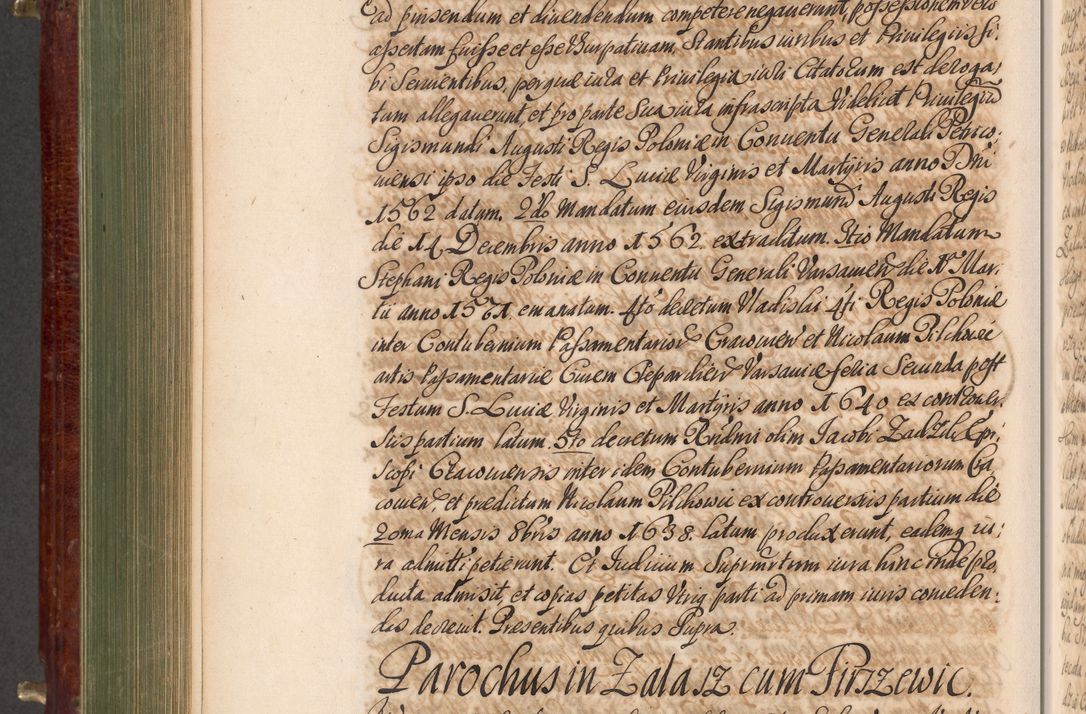 ad pinsendum et diuendendum competere negauerunt, possessionem vero
assertam fuisse et esse Vsurpatiuam, Stantibus iuribus et Priuilegiis si,
bi Seruientibus, per quae iura et Priuilegia iuri Citatorum est deroga,
tum allegauerunt, et pro parte Sua iura infrascripta Videlicet Priuilegiũ
Sigismundi Augusti Regis Poloniæ in Conuentu Generali Petrico,
uiensi ipso die Festi S. Luciæ Virginis et Martyris anno Dni
1562 datum. 2do Mandatum eiusdem Sigismund Augusti Regis
die 14 Decembris anno 1562 extraditum. 3tio Mandatum
Stephani Regis Poloniæ in Conuentu Generali Varsauien die 1a Mar,
tii anno 1571 emanatum. 4to decretum Vladislai 4ti Regis Poloniæ
inter Contubernium Passamentarior Cracouien et Nicolaum Pilchowic
artis Passamentariæ Ciuem Clepardien Varsauiæ feria Secunda post
Festum S. Luciæ Virginis et Martyris anno 1640 ex controuer,
siis partium latum. 5to decretum Rndmi olim Jacobi Zadzik Epi,
scopi Cracouiensis inter idem Contubernium Passamentariorum Cra
couien, et prædictum Nicolaum Pilchowic ex controuersiis partium die
20ma Mensis 8bris anno 1638 latum produxerunt, eademq iu,
ra admitti petierunt. Et Judicium Supremum iura hinc inde pro,
ducta admisit, et copias petitas Vtriq parti ad primam iuris conceden,
das decreuit. Præsentibus quibus Supra.
Parochus in Zalasz cum Pirszewic.